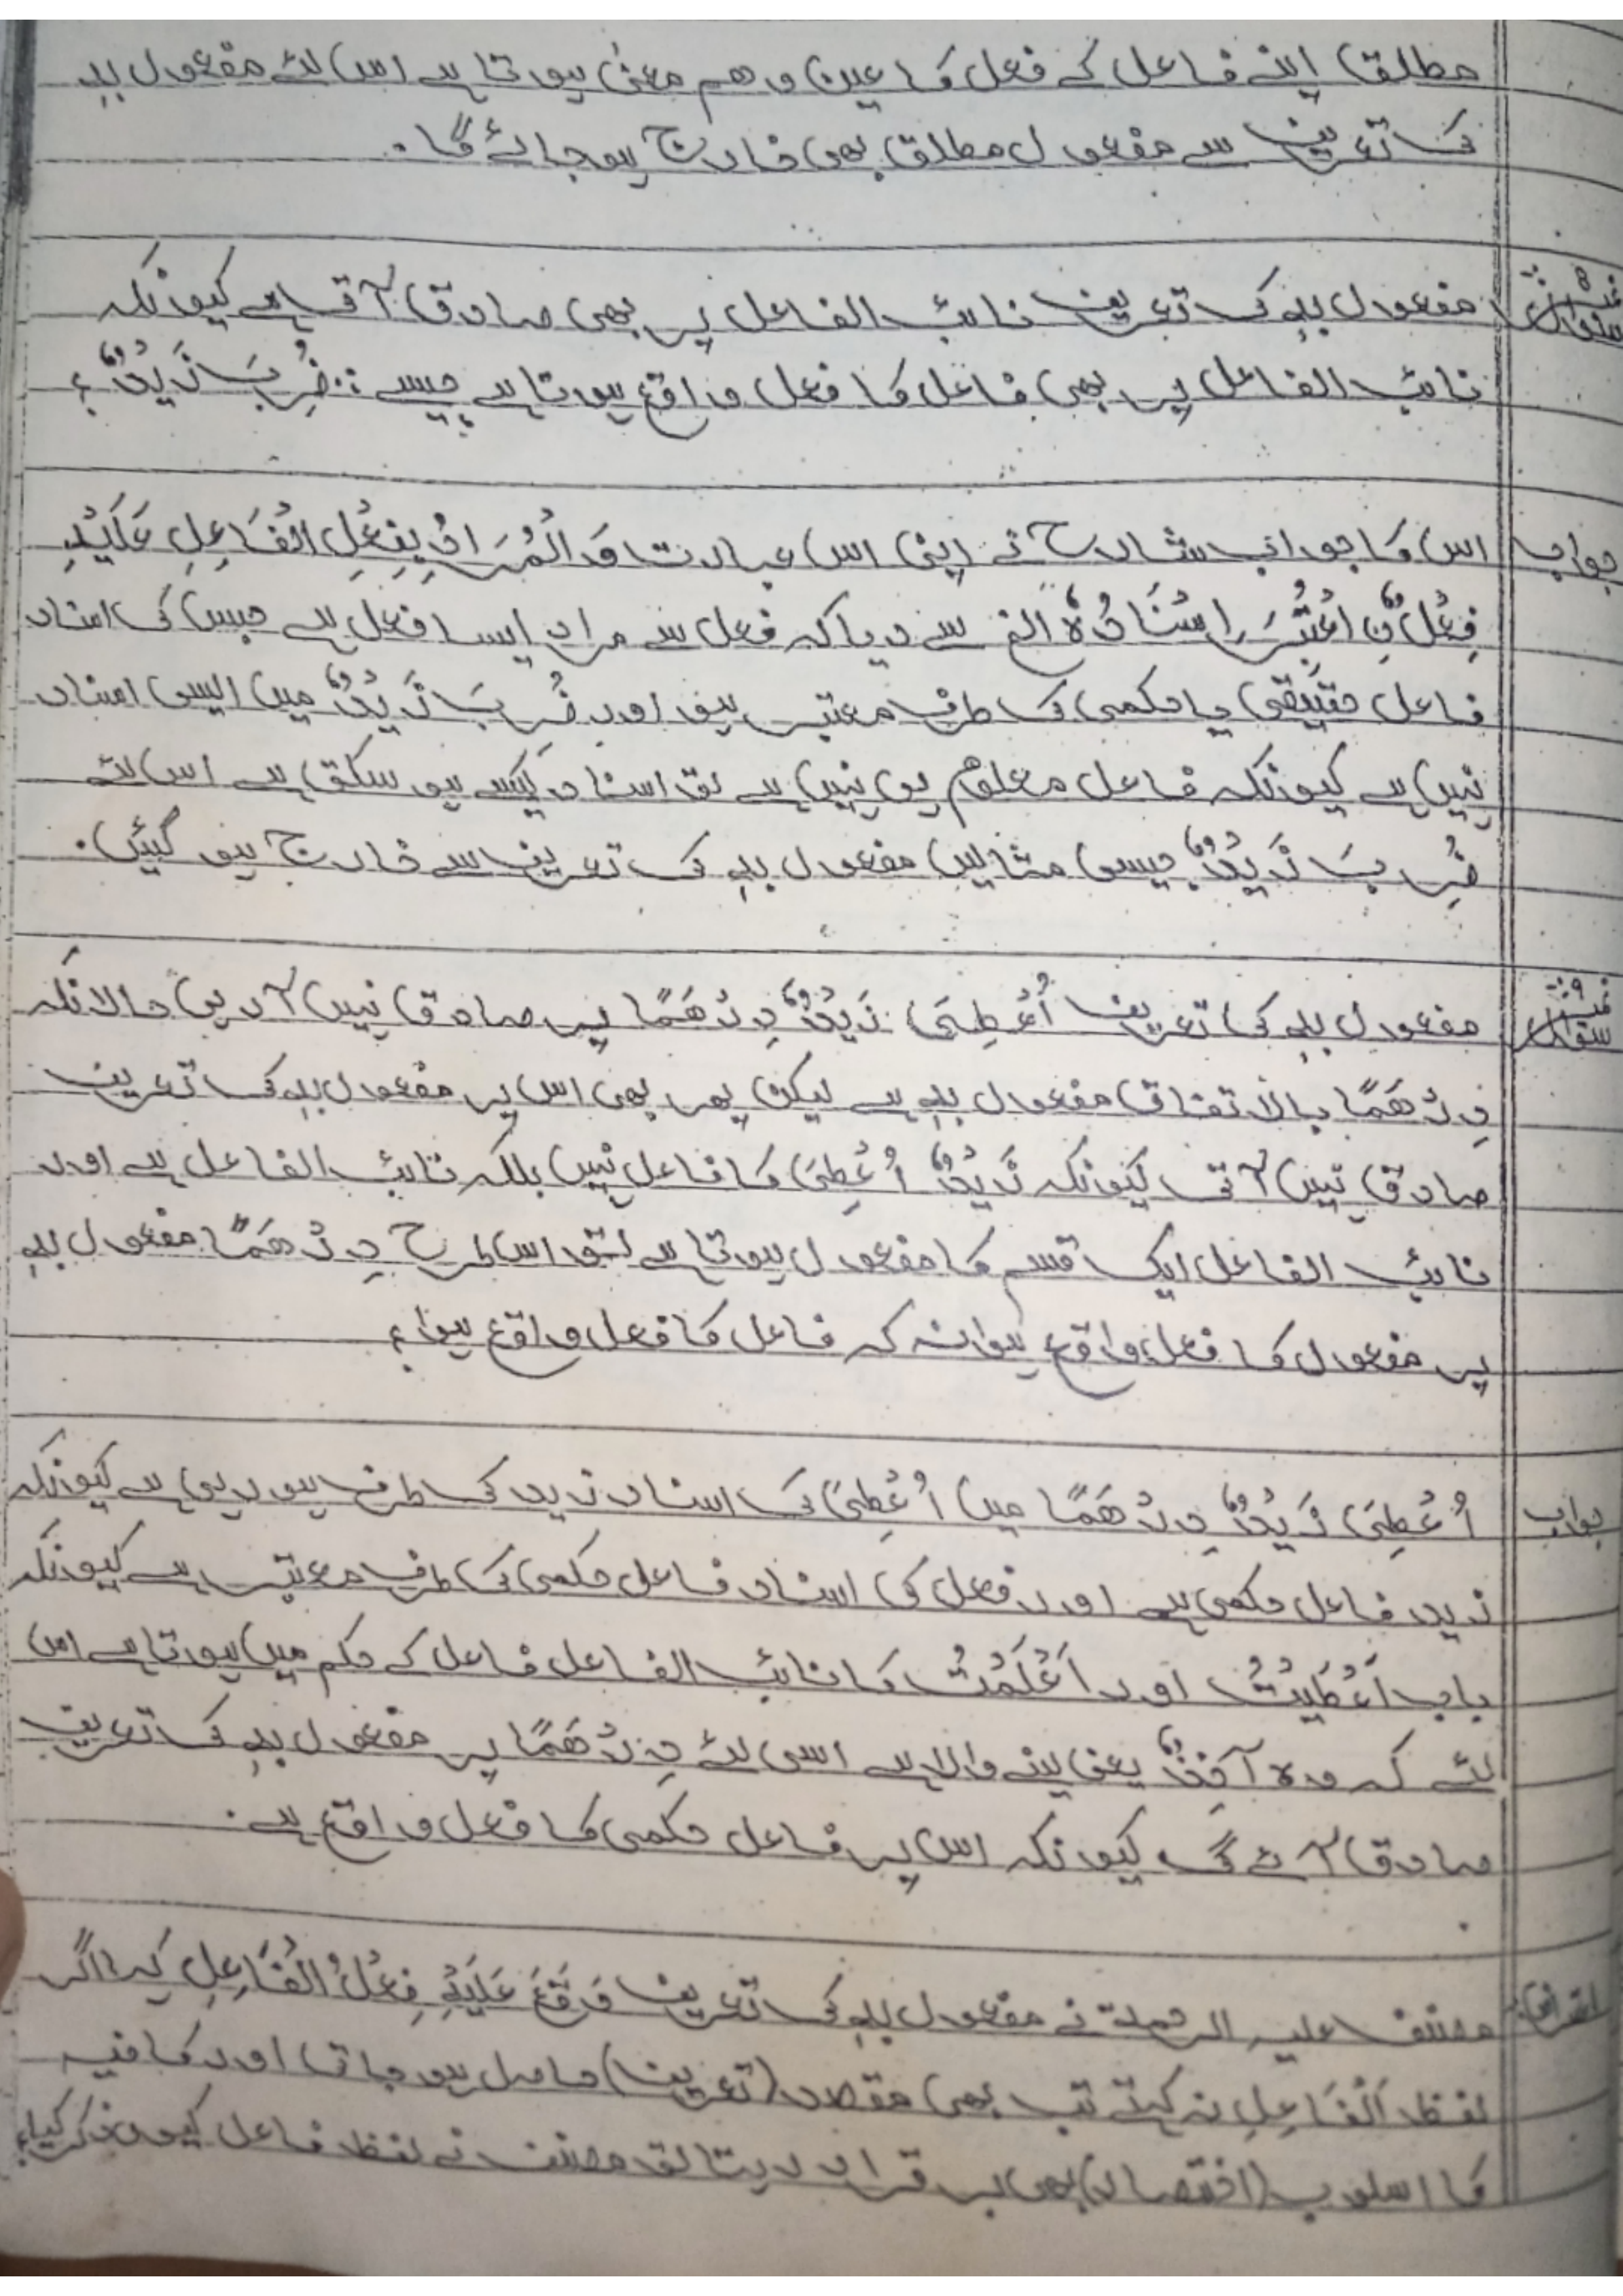 مطلق اپنے فاعل کے فعل کا عین و ہم معنیٰ ہوتا ہے اس لئے مفعول بہٖ
کی تعریف سے مفعول مطلق بھی خارج ہو جائے گا۔
سوال نمبر ۸:- مفعول بہٖ کی تعریف نائب الفاعل پر بھی صادق آتی ہے کیونکہ
نائب الفاعل پر بھی فاعل کا فعل واقع ہوتا ہے جیسے: ضُرِبَ زَیْدٌ؟
جواب اس کا جواب شارح نے اپنی اس عبارت وَالْمُرَادُ بِفِعْلِ الْفَاعِلِ عَلَیْہِ
فِعْلٌ نِ اعْتُبِرَ اِسْنَادُہٗ الخ سے دیا کہ فعل سے مراد ایسا فعل ہے جس کی اسناد
فاعل حقیقی یا حکمی کی طرف معتبر ہو اور ضُرِبَ زَیْدٌ میں ایسی اسناد
نہیں ہے کیونکہ فاعل معلوم ہی نہیں ہے تو اسناد کیسے ہو سکتی ہے اس لئے
ضُرِبَ زَیْدٌ جیسی مثالیں مفعول بہٖ کی تعریف سے خارج ہو گئیں۔
سوال نمبر ۹:- مفعول بہٖ کی تعریف اُعْطِیَ زَیْدٌ دِرْھَمًا پر صادق نہیں آ رہی حالانکہ
دِرْھَمًا بالاتفاق مفعول بہٖ ہے لیکن پھر بھی اس پر مفعول بہٖ کی تعریف
صادق نہیں آتی کیونکہ زَیْدٌ اُعْطِیَ کا فاعل نہیں بلکہ نائب الفاعل ہے اور
نائب الفاعل ایک قسم کا مفعول ہوتا ہے تو اس طرح دِرْھَمًا مفعول بہٖ
پر مفعول کا فعل واقع ہوا نہ کہ فاعل کا فعل واقع ہوا؟
جواب اُعْطِیَ زَیْدٌ دِرْھَمًا میں اُعْطِیَ کی اسناد زید کی طرف ہو رہی ہے کیونکہ
زید فاعل حکمی ہے اور فعل کی اسناد فاعل حکمی کی طرف معتبر ہے کیونکہ
باب اَعْطَیْتُ اور اَعْلَمْتُ کا نائب الفاعل فاعل کے حکم میں ہوتا ہے اس
لئے کہ وہ آخِذٌ یعنی لینے والا ہے اسی لئے دِرْھَمًا پر مفعول بہٖ کی تعریف
صادق آئے گی کیونکہ اس پر فاعل حکمی کا فعل واقع ہے۔
اعتراض: مصنف علیہ الرحمۃ نے مفعول بہٖ کی تعریف وَقَعَ عَلَیْہِ فِعْلُ الْفَاعِلِ کہ اگر
لفظ اَلْفَاعِلِ نہ کہتے تب بھی مقصد (تعریف) حاصل ہو جاتا اور کافیہ
کا اسلوب (اختصار) بھی بر قرار رہتا تو مصنف نے لفظ فاعل کیوں ذکر کیا؟